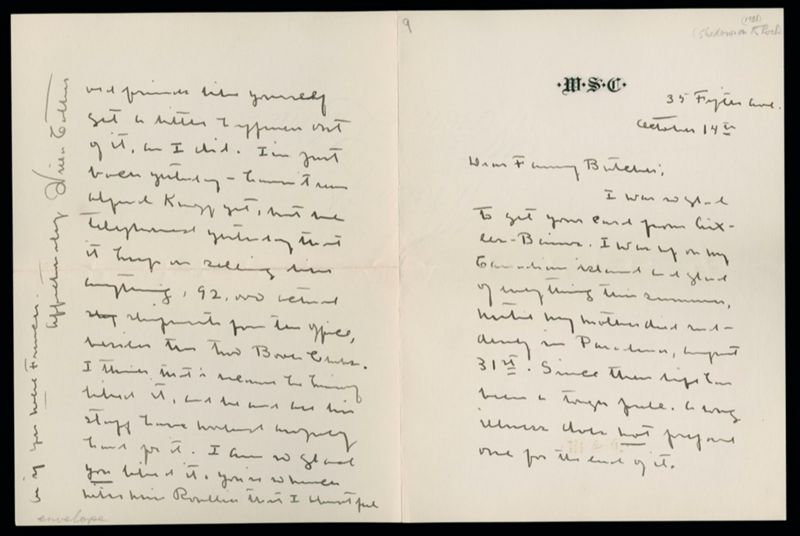 (1931)
9
·W·S·C·
35 Fifth Ave.
October 14th
Dear Fanny Butcher;
I was so glad
to get your card from Aix-
les-Bains. I was up on my
Canadian island and glad
of everything this summer,
until my mother died sud-
denly in Pasadena, August
31st. Since then life has
been a tough pull. A long
illness does not prepare
one for the end of it.
and friends like yourself
get a little happiness out
of it, as I did. I'm just
back yesterday - haven't seen
Alfred Knopf yet, but he
telephoned yesterday that
it keeps on selling like
anything, 92,000 actual
shipments from the office,
besides the two Book Clubs.
I think that is because he
liked it, and he and all his
staff have worked
hard for it. I am so glad
you liked it. you
like Miss that I
as if you were French.
Appreciatively
Willa Cather
envelope